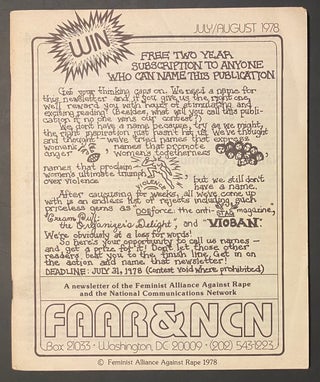 JULY/AUGUST 1978
WIN
FREE TWO YEAR
SUBSCRIPTION TO ANYONE
WHO CAN NAME THIS PUBLICATION
Get your thinking caps on. We need a name for
this newsletter and if you give us the right one,
we'll reward you with hours of stimulating and
exciting reading! (Besides, what will you call this publi-
cation if no one wins our contest?)
We don't have a name because, try as we might,
the right inspiration just hasn't hit us. We've thought
and thought – we've tried names that express
women's
anger
, names that promote
women's togetherness
names that proclaim
women's ultimate triumph
over violence
, but we still don't
have a name.
After caucusing for weeks, all we've come up
with is an endless list of rejects including such
priceless gems as
the anti-
magazine,"
"Cream Puff:
the Organizer's Delight", and "VIOBAN".
We're obviously at a loss for words!
So here's your opportunity to call us names –
and get a prize for it! Don't let those other
readers beat you to the finish line. Get in on
the action and name that newsletter!
DEADLINE: JULY 31, 1978 (Contest void where prohibited)
A newsletter of the Feminist Alliance Against Rape
and the National Communications Network
FAAR & NCN
Box 21033 • Washington, DC 20009 • (202) 543-1223
© Feminist Alliance Against Rape 1978